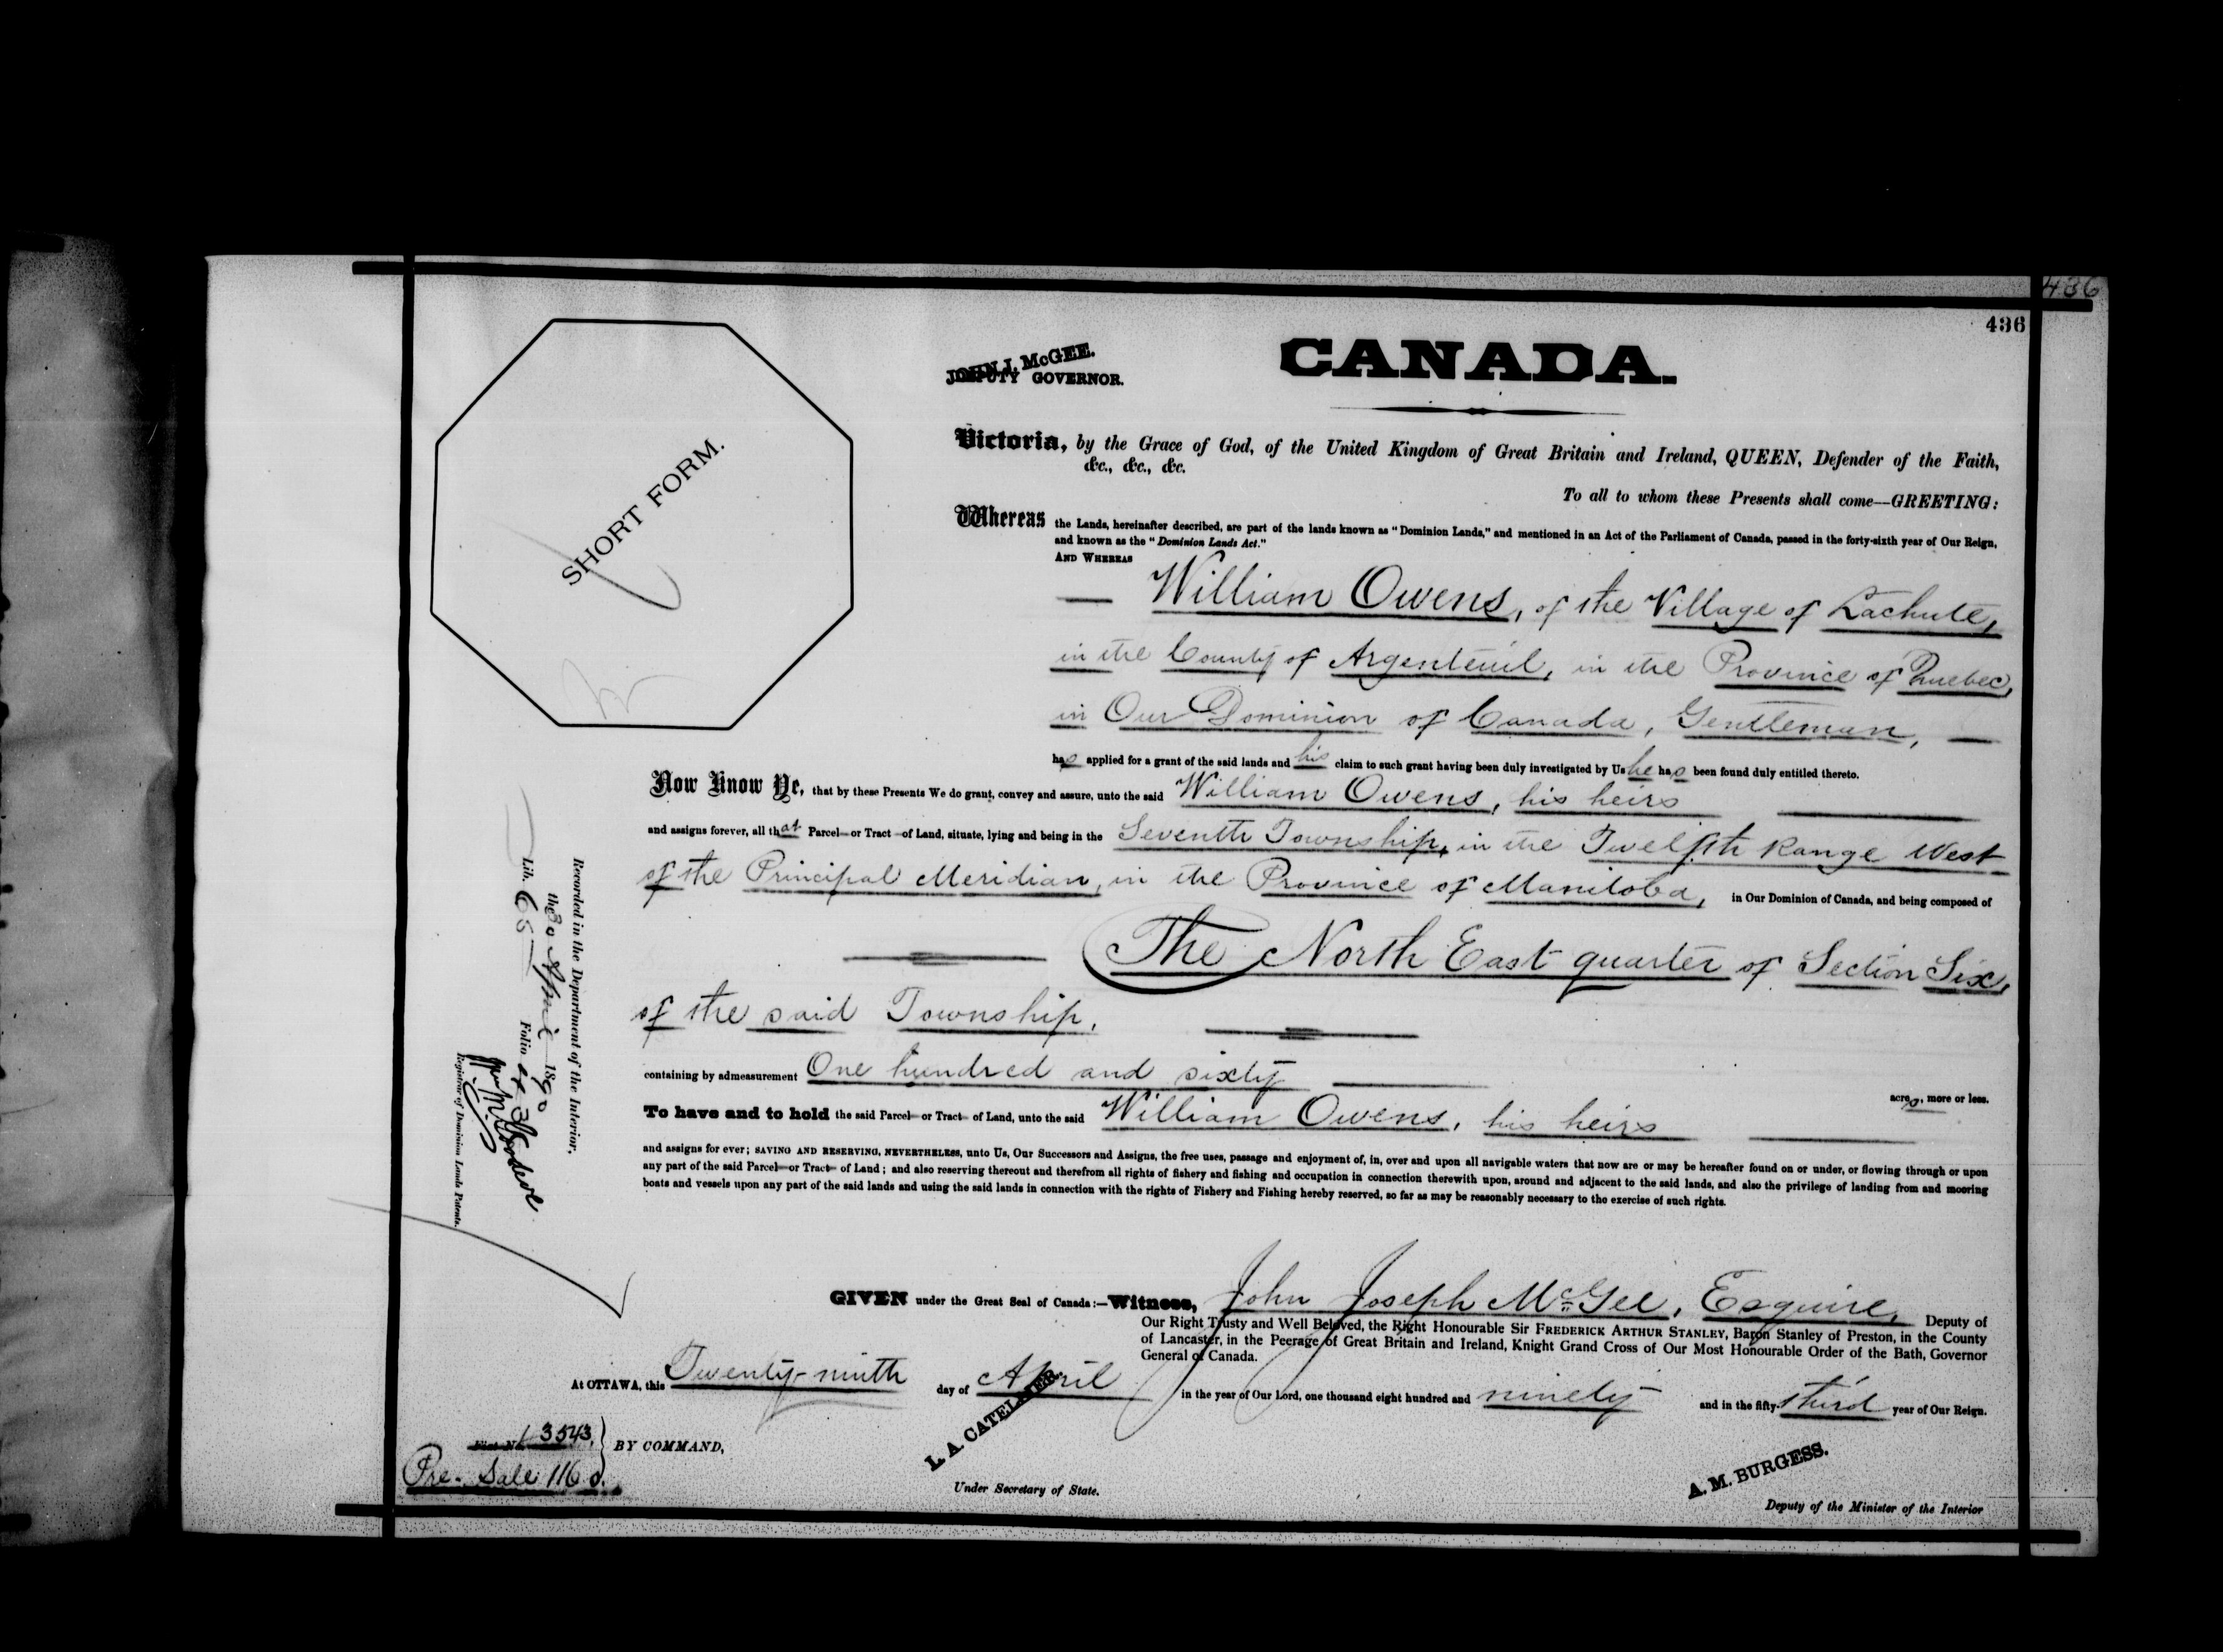 436
436
JOHN J. McGEE.
DEPUTY GOVERNOR.
CANADA.
SHORT FORM.
Victoria, by the Grace of God, of the United Kingdom of Great Britain and Ireland, QUEEN, Defender of the Faith,
&c., &c., &c.
To all to whom these Presents shall come—GREETING:
Whereas the Lands, hereinafter described, are part of the lands known as "Dominion Lands," and mentioned in an Act of the Parliament of Canada, passed in the forty-sixth year of Our Reign,
and known as the "Dominion Lands Act."
AND WHEREAS
William Owens, of the Village of Lachute,
in the County of Argenteuil, in the Province of Quebec,
in Our Dominion of Canada, Gentleman,
has applied for a grant of the said lands and his claim to such grant having been duly investigated by Us he has been found duly entitled thereto.
Now Know Ye, that by these Presents We do grant, convey and assure, unto the said William Owens, his heirs
and assigns forever, all that Parcel or Tract of Land, situate, lying and being in the Seventh Township, in the Twelfth Range West
of the Principal Meridian, in the Province of Manitoba, in Our Dominion of Canada, and being composed of
The North East quarter of Section Six,
of the said Township.
containing by admeasurement One hundred and sixty
acres, more or less.
To have and to hold the said Parcel or Tract of Land, unto the said William Owens, his heirs
and assigns for ever; SAVING AND RESERVING, NEVERTHELESS, unto Us, Our Successors and Assigns, the free uses, passage and enjoyment of, in, over and upon all navigable waters that now are or may be hereafter found on or under, or flowing through or upon
any part of the said Parcel or Tract of Land; and also reserving thereout and therefrom all rights of fishery and fishing and occupation in connection therewith upon, around and adjacent to the said lands, and also the privilege of landing from and mooring
boats and vessels upon any part of the said lands and using the said lands in connection with the rights of Fishery and Fishing hereby reserved, so far as may be reasonably necessary to the exercise of such rights.
Recorded in the Department of the Interior,
the 30 April 1890
Lib. 65 Folio
Registrar of Dominion Lands Patents.
GIVEN under the Great Seal of Canada:—Witness, John Joseph McGee, Esquire, Deputy of
Our Right Trusty and Well Beloved, the Right Honourable Sir FREDERICK ARTHUR STANLEY, Baron Stanley of Preston, in the County
of Lancaster, in the Peerage of Great Britain and Ireland, Knight Grand Cross of Our Most Honourable Order of the Bath, Governor
General of Canada.
At OTTAWA, this Twenty-ninth day of April in the year of Our Lord, one thousand eight hundred and ninety and in the fifty third year of Our Reign.
13543
Pre. Sale 1160.
BY COMMAND,
L. A. CATELLIER.
Under Secretary of State.
A. M. BURGESS.
Deputy of the Minister of the Interior